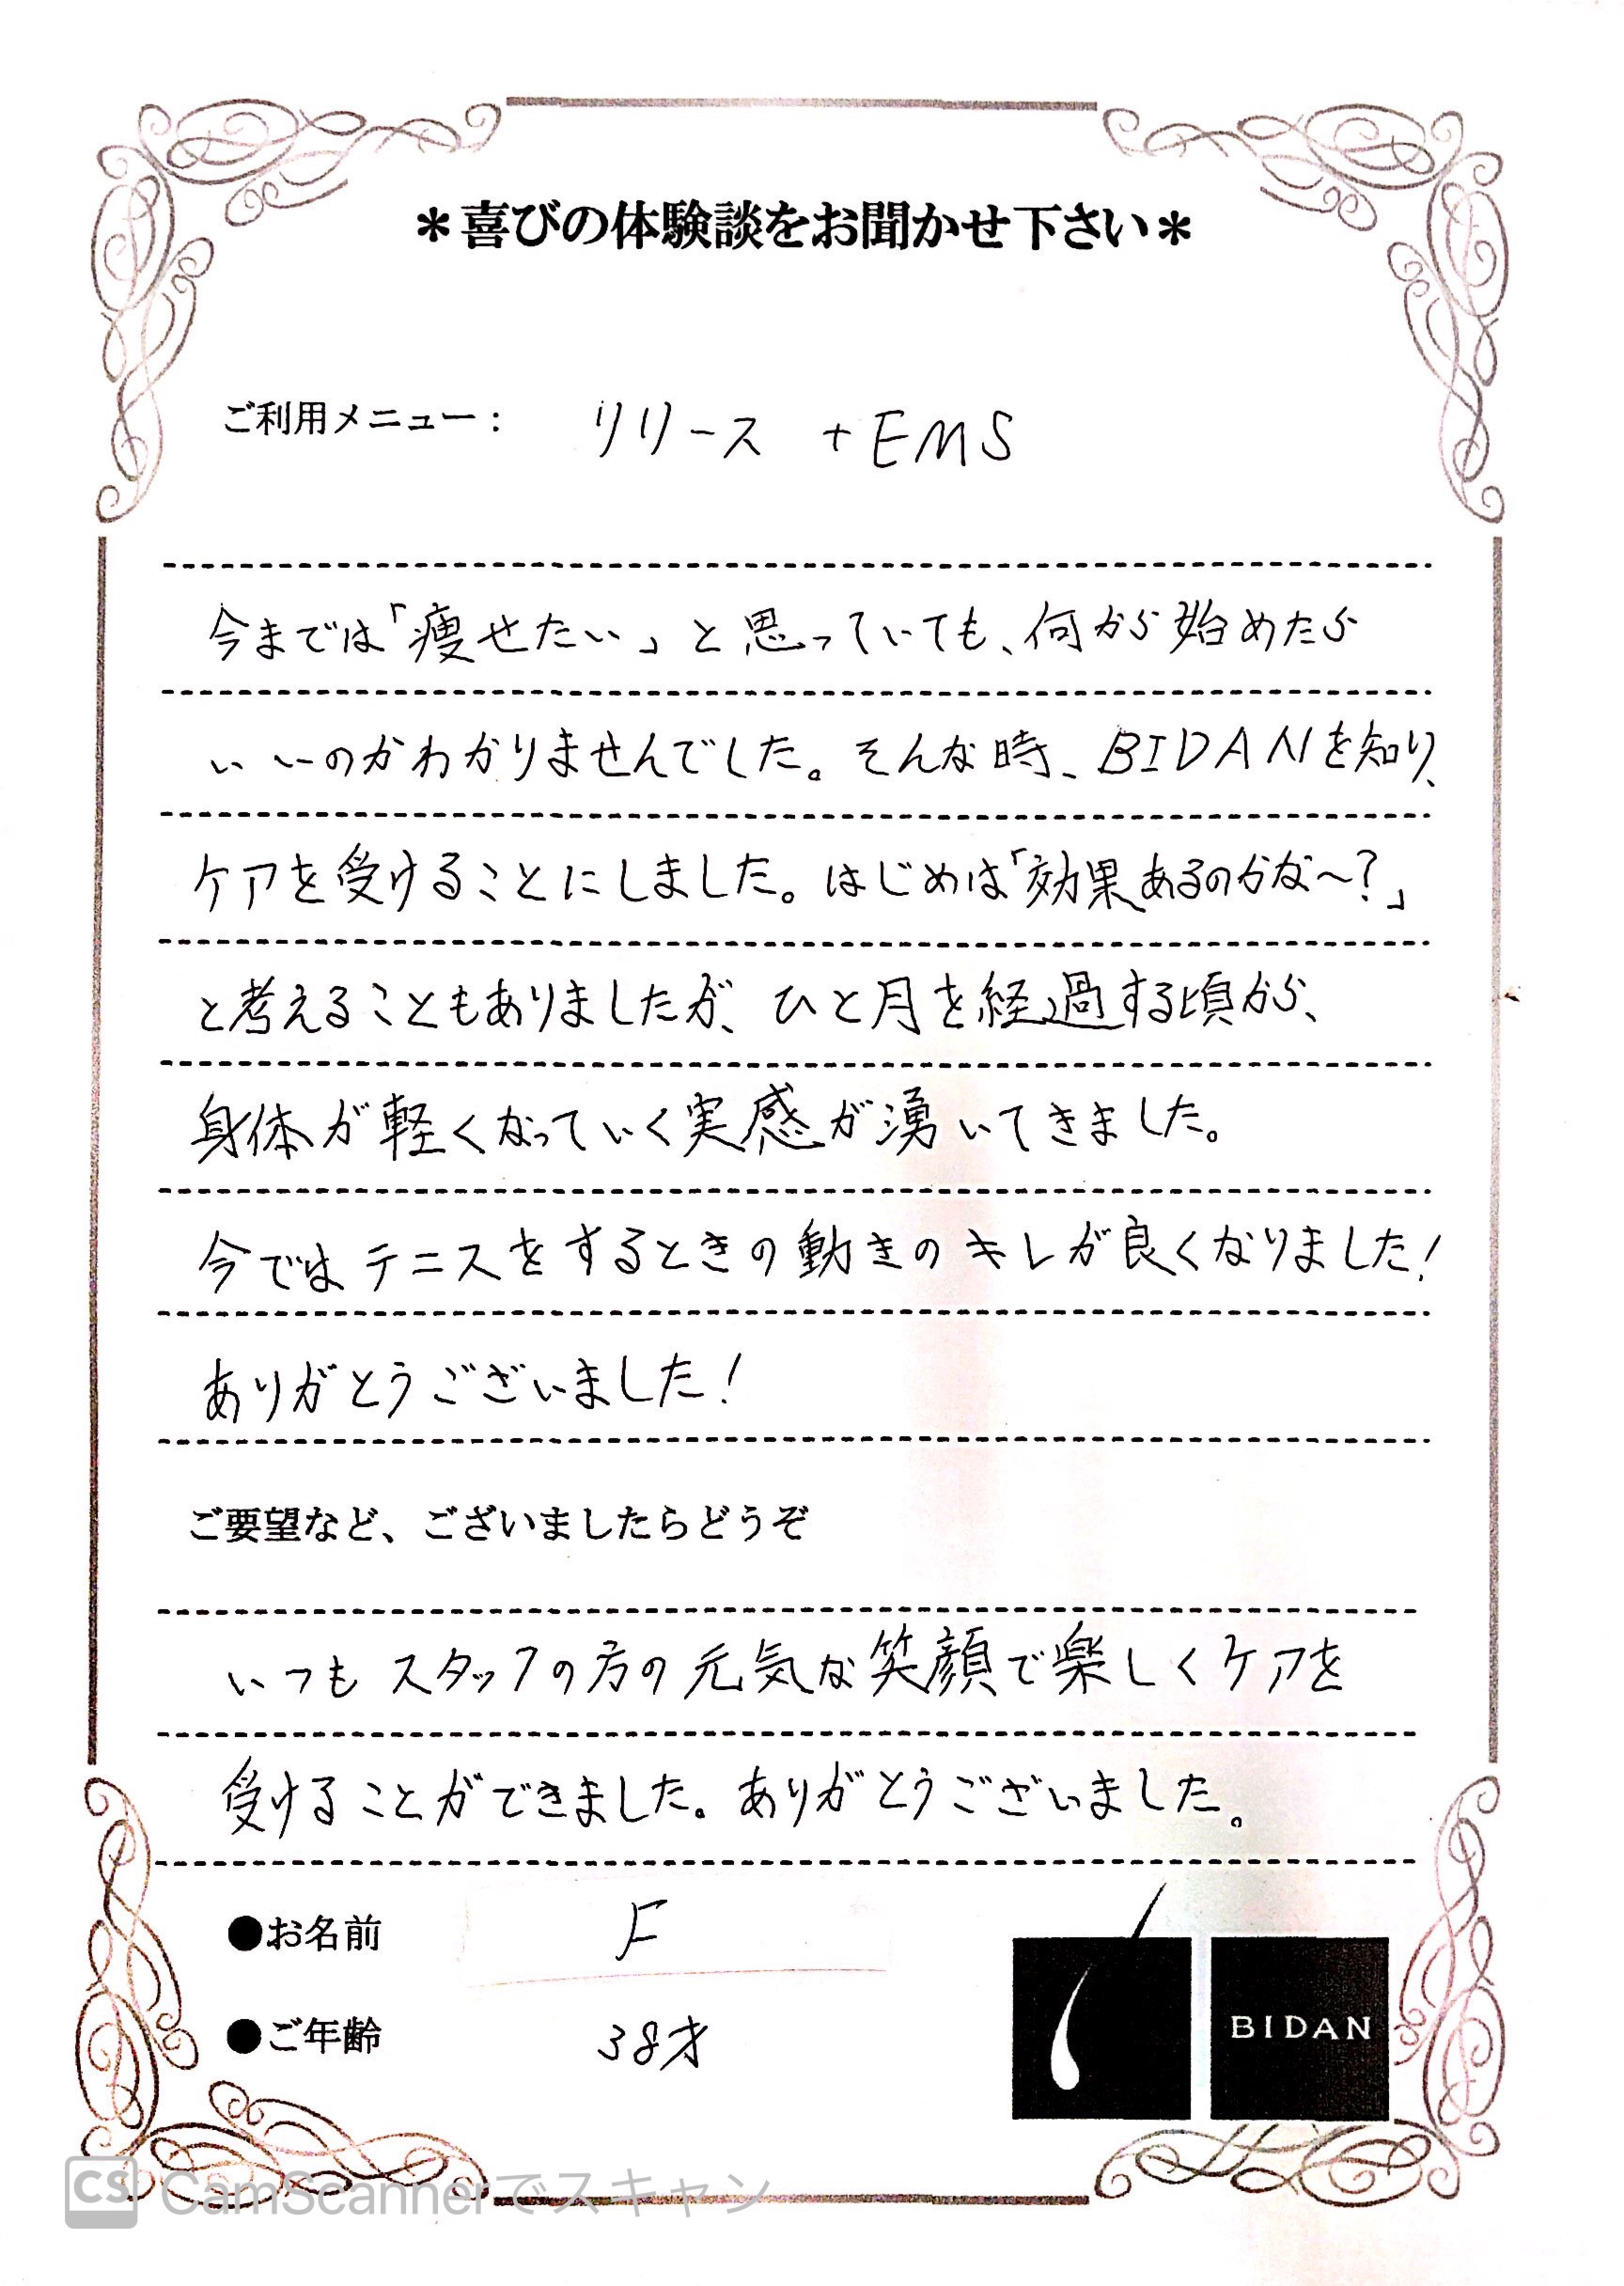 ＊喜びの体験談をお聞かせ下さい＊
ご利用メニュー： リリース +EMS
今までは「痩せたい」と思っていても、何から始めたら
いいのかわかりませんでした。そんな時、BIDANを知り、
ケアを受けることにしました。はじめは「効果あるのかな～？」
と考えることもありましたが、ひと月を経過する頃から、
身体が軽くなっていく実感が湧いてきました。
今ではテニスをするときの動きのキレが良くなりました！
ありがとうございました！
ご要望など、ございましたらどうぞ
いつもスタッフの方の元気な笑顔で楽しくケアを
受けることができました。ありがとうございました。
●お名前 F
●ご年齢 38才
BIDAN
CS CamScannerでスキャン